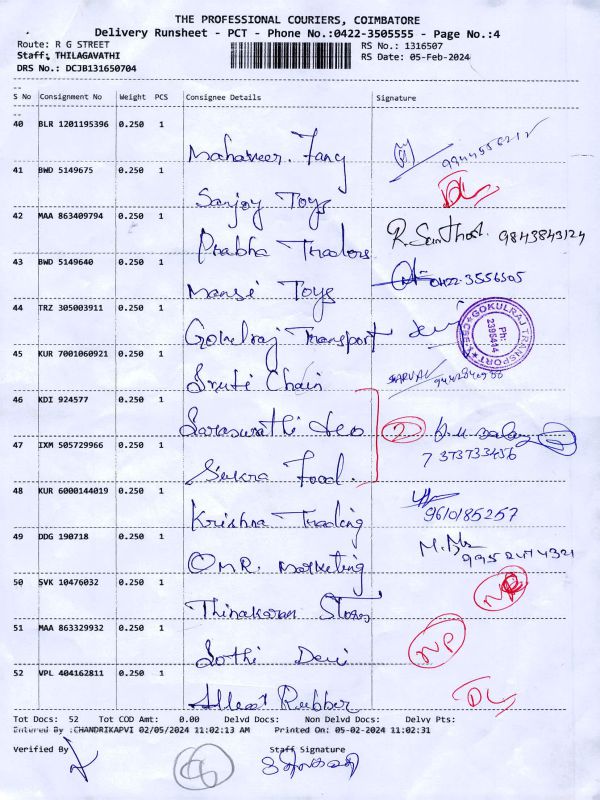 THE PROFESSIONAL COURIERS, COIMBATORE
Delivery Runsheet - PCT - Phone No.:0422-3505555 - Page No.:4
Route: R G STREET RS No.: 1316507
Staff: THILAGAVATHI RS Date: 05-Feb-2024
DRS No.: DCJB131650704
S No Consignment No Weight PCS Consignee Details Signature
40 BLR 1201195396 0.250 1
Mahaveer. Fancy 9944556212
41 BWD 5149675 0.250 1
Sanjoy Toys DL
42 MAA 863409794 0.250 1
Prabha Traders R. Santhosh. 9843843124
43 BWD 5149640 0.250 1
Mansi Toys 0422-3556505
44 TRZ 305003911 0.250 1
Gokulraj Transport
GOKULRAJ TRANSPORT
Ph:
45 KUR 7001060921 0.250 1
Sruti Chain
46 KDI 924577 0.250 1
Saraswathi 2
47 IXM 505729966 0.250 1
7373733456
Sukra Food.
48 KUR 6000144019 0.250 1
Krishna Trading 9610185257
49 DDG 190718 0.250 1
OMR. Marketing 9952474321
50 SVK 10476032 0.250 1
Thinakaran Stores NP
51 MAA 863329932 0.250 1
Jothi Devi NP
52 VPL 404162811 0.250 1
Rubber DL
Tot Docs: 52 Tot COD Amt: 0.00 Delvd Docs: Non Delvd Docs: Delvy Pts:
Entered By :CHANDRIKAPVI 02/05/2024 11:02:13 AM Printed On: 05-02-2024 11:02:31
Verified By Staff Signature